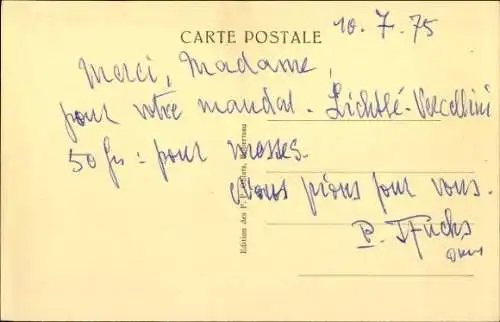 CARTE POSTALE
10.7.75
Merci, Madame,
pour votre mandat. Lichtlé-Vercellini
50 frs = pour messes.
Nous prions pour vous.
P. Fuchs
Edition des P. P. Oblats,